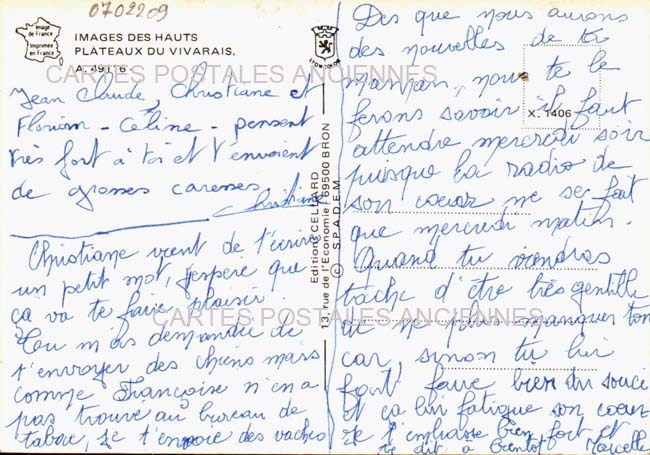 0702209
Image de France
Imprimée en France
IMAGES DES HAUTS
PLATEAUX DU VIVARAIS.
A. 49116
CARTES POSTALES ANCIENNES
Jean Claude, Christiane et
Florian - Céline - pensent
très fort à toi et t'envoient
de grosses caresses.
Christiane
Christiane vient de t'écrire
un petit mot, j'espère que
ça va te faire plaisir.
Tu m'as demandée de
t'envoyer des chiens mais
comme Françoise n'en a
pas trouvé au bureau de
tabac, je t'envoie des vaches
LYONCOLOR
Editions CELLARD
13, rue de l'Economie / 69500 BRON
© S.P.A.D.E.M.
X. 1406
Des que nous aurons
des nouvelles de ta
maman, nous te le
ferons savoir il faut
attendre mercredi soir
puisque la radio de
son coeur ne se fait
que mercredi matin.
Quand tu viendras
tache d'être très gentille
et ne plus manquer ton
car, sinon tu lui
font faire bien du souci
et ça lui fatigue son coeur
Je t'embrasse bien fort et
te dit à bientôt Marcelle
CARTES POSTALES ANCIENNES